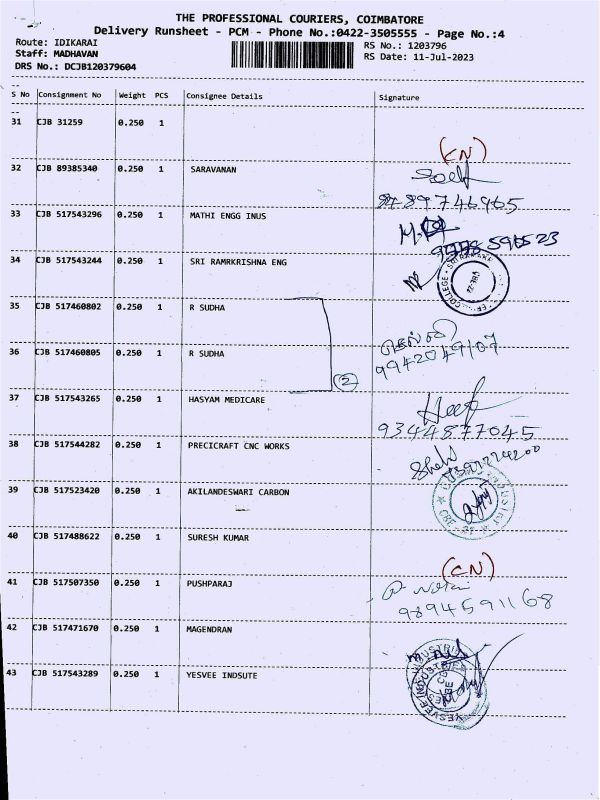 THE PROFESSIONAL COURIERS, COIMBATORE
Delivery Runsheet - PCM - Phone No.:0422-3505555 - Page No.:4
Route: IDIKARAI
RS No.: 1203796
Staff: MADHAVAN
RS Date: 11-Jul-2023
DRS No.: DCJB120379604
S No Consignment No Weight PCS Consignee Details Signature
31 CJB 31259 0.250 1
(CN)
32 CJB 89385340 0.250 1 SARAVANAN
33 CJB 517543296 0.250 1 MATHI ENGG INUS
34 CJB 517543244 0.250 1 SRI RAMRKRISHNA ENG
COLLEGE
35 CJB 517460802 0.250 1 R SUDHA
36 CJB 517460805 0.250 1 R SUDHA
9942049107
2
37 CJB 517543265 0.250 1 HASYAM MEDICARE
9344877045
38 CJB 517544282 0.250 1 PRECICRAFT CNC WORKS
39 CJB 517523420 0.250 1 AKILANDESWARI CARBON
40 CJB 517488622 0.250 1 SURESH KUMAR
(CN)
41 CJB 517507350 0.250 1 PUSHPARAJ
9894591168
42 CJB 517471670 0.250 1 MAGENDRAN
43 CJB 517543289 0.250 1 YESVEE INDSUTE
YESVEE INDUSTRIES